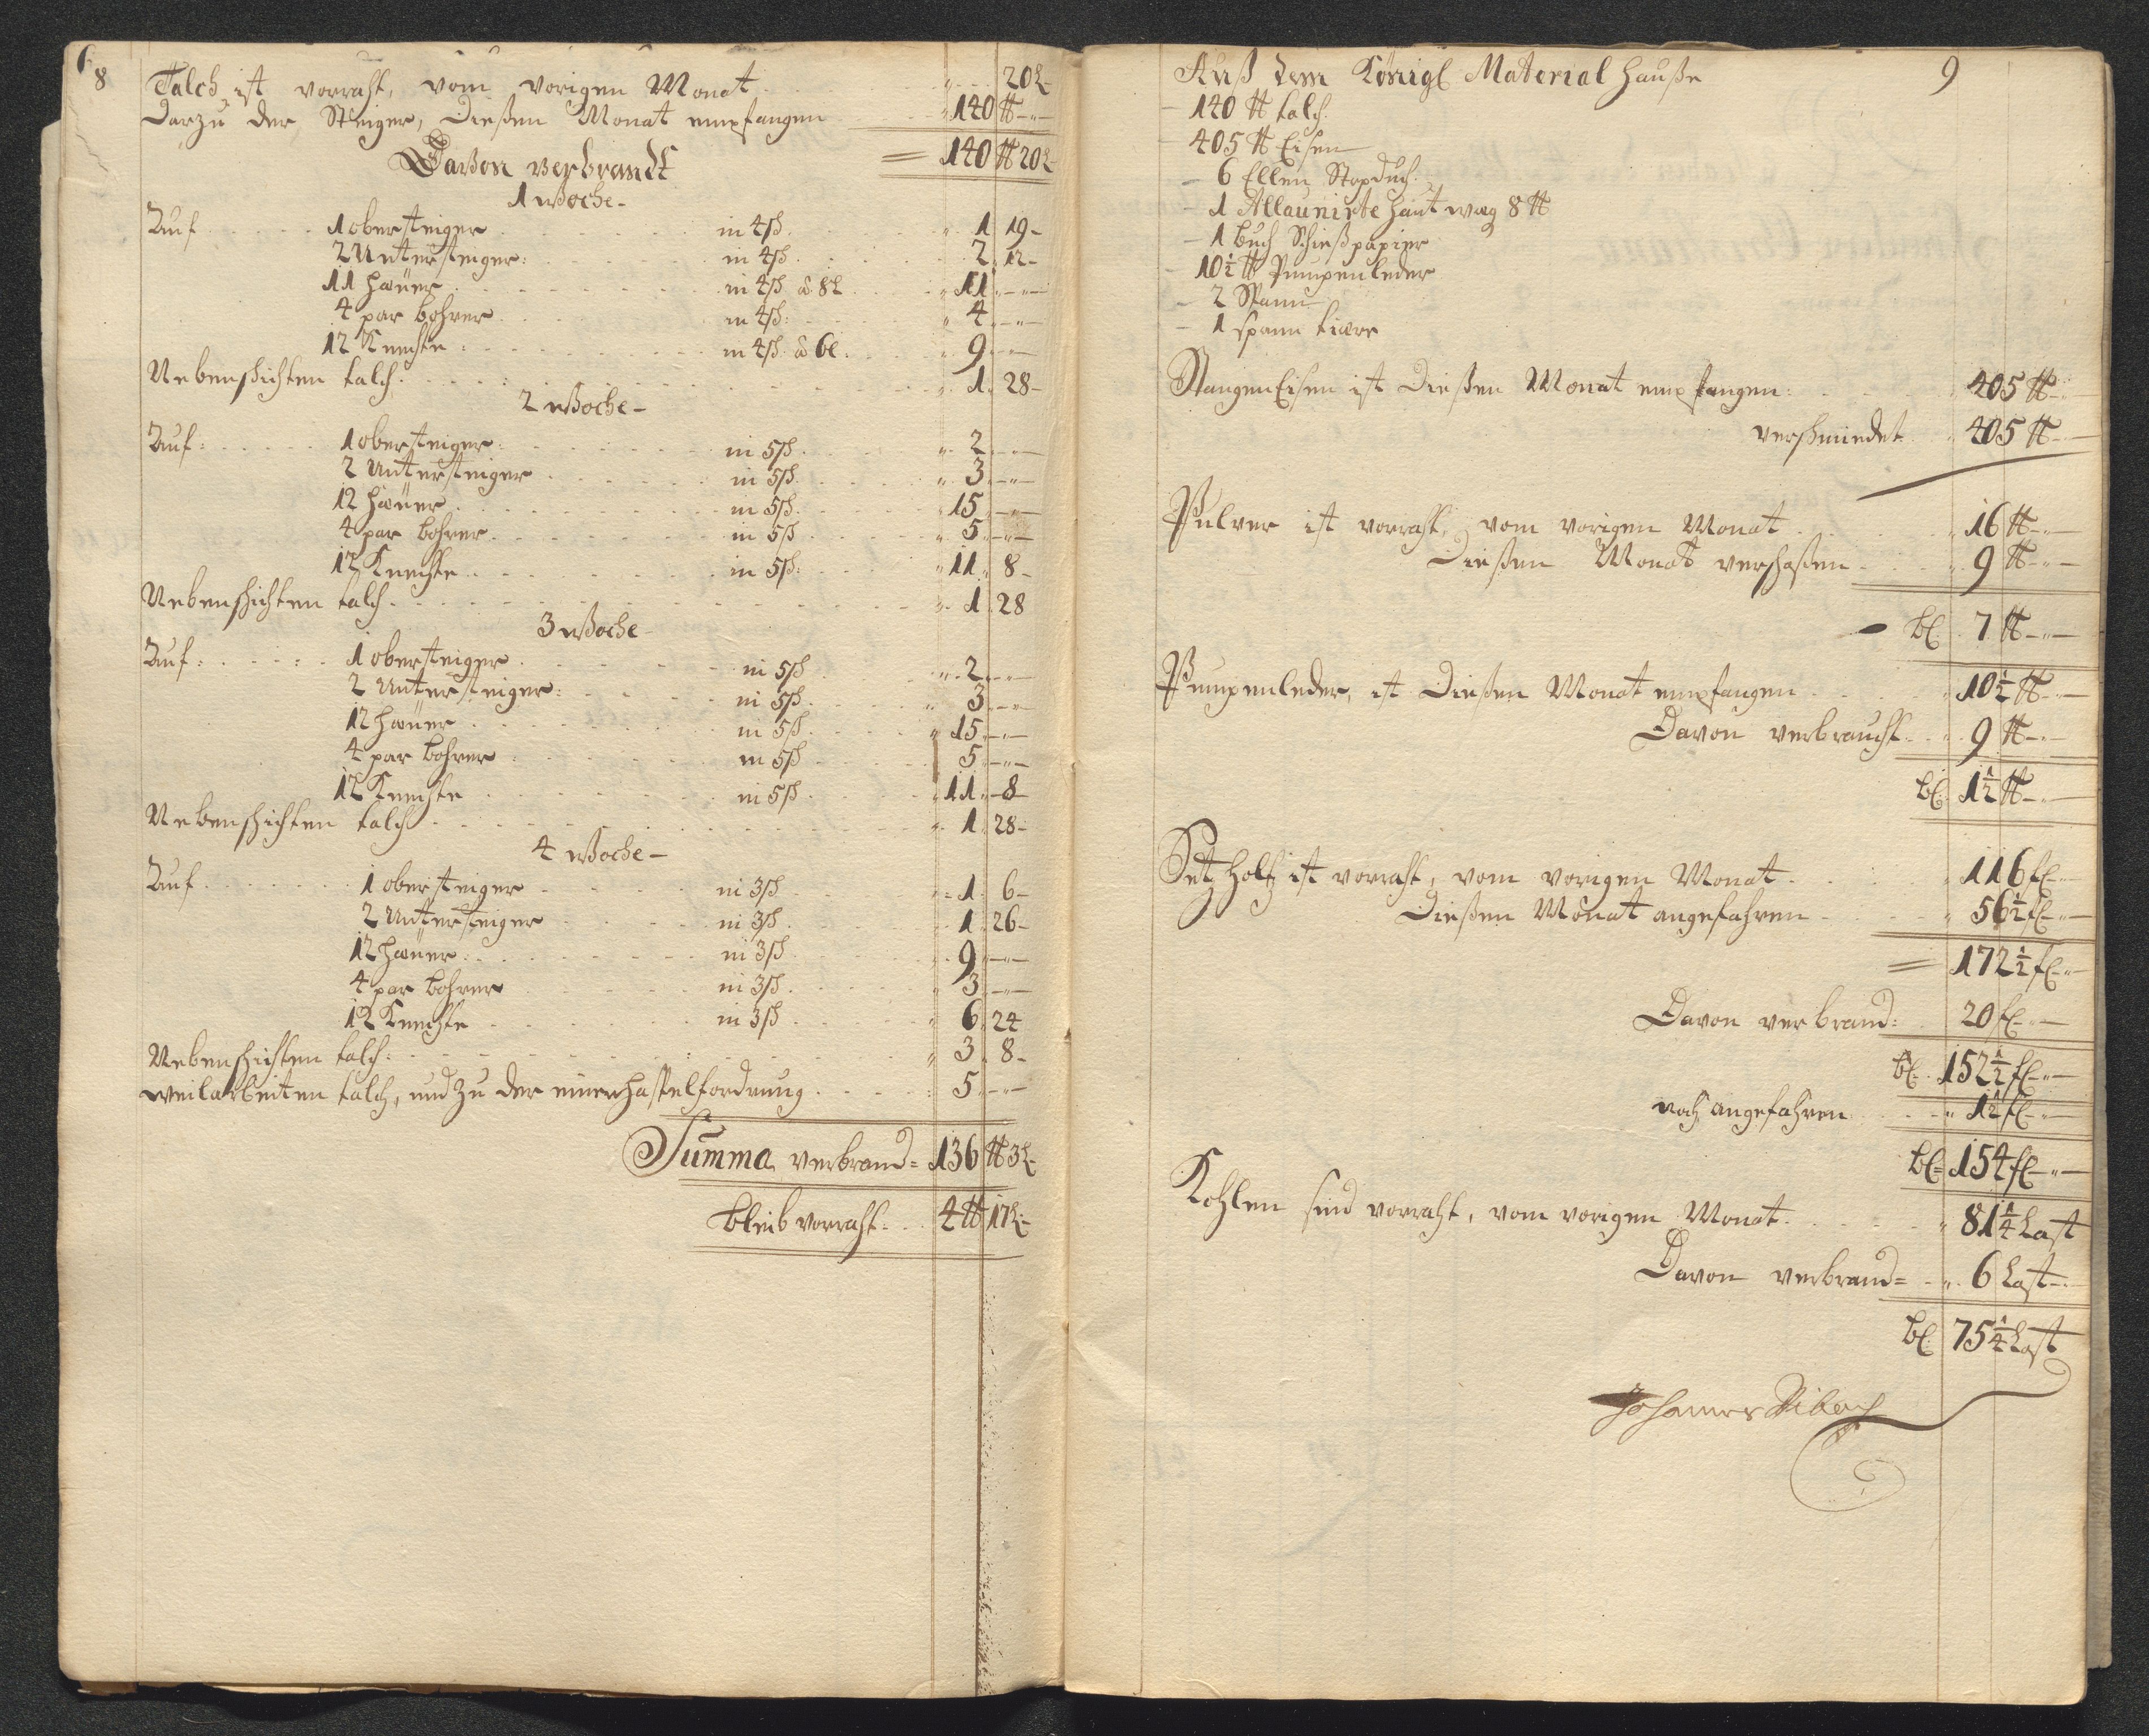 8
Talch ist vorraht, vom vorigen Monat . . . 20 L
Darzu der Steiger, Diesen Monat empfangen . . . 140 ℔ -"-
= 140 ℔ 20 L
Davon verbrandt
1 woche -
Auf . . . 1 obersteiger . . . in 4 sh . . . 1 19 -
2 Untersteiger: . . . in 4 sh . . . 2 12 -
11 häuer . . . in 4 sh à 8 L . . . 11 -"-
4 par bohrer . . . in 4 sh: . . . 4 -"-
12 Knechte . . . in 4 sh à 6 L . . . 9 -"-
Nebenschichten talch . . . 1 28 -
2 woche -
Auf: . . . 1 obersteiger . . . in 5 sh . . . 2 -"-
2 Untersteiger . . . in 5 sh . . . 3 -"-
12 häuer . . . in 5 sh . . . 15 -"-
4 par bohrer . . . in 5 sh . . . 5 -"-
12 Knechte . . . in 5 sh: . . . 11 8 -
Nebenschichten talch . . . 1 28
3 woche -
Auf: . . . 1 obersteiger . . . in 5 sh . . . 2 -"-
2 Untersteiger: . . . in 5 sh . . . 3 -"-
12 häuer . . . in 5 sh . . . 15 -"-
4 par bohrer . . . in 5 sh . . . 5 -"-
12 Knechte . . . in 5 sh . . . 11 8
Nebenschichten talch . . . 1 28 -
4 woche -
Auf . . . 1 obersteiger . . . in 3 sh . . . 1 6 -
2 Untersteiger . . . in 3 sh . . . 1 26 -
12 häuer . . . in 3 sh . . . 9 -"-
4 par bohrer . . . in 3 sh . . . 3 -"-
12 Knechte . . . in 3 sh . . . 6 24
Nebenschichten talch: . . . 3 8 -
weilarbeiten talch, und zu der einen haspelfordrung . . . 5 -"-
Summa verbrand = 136 ℔ 3 L
bleib vorraht . . . 4 ℔ 17 L
9
Auß dem Königl Material hauße
- 140 ℔ talch
- 405 ℔ Eisen
- 6 Ellen Stopduch
- 1 Allaunirte haut wag 8 ℔
- 1 buch Schießpapier
- 10½ ℔ Pumpenleder
- 2 Spann
- 1 spann tiære
Stangen Eisen ist Diesen Monat empfangen: . . . 405 ℔ -"-
verschmiedet . . . 405 ℔ -
Pulver ist vorraht, vom vorigen Monat . . . 16 ℔ -"-
Diesen Monat verschoßen . . . 9 ℔ -"-
bl: 7 ℔ -"-
Pumpenleder, ist Diesen Monat empfangen . . . 10½ ℔ -
Davon verbraucht . . . 9 ℔ -"-
bl: 1½ ℔ -"-
Setz holtz ist vorraht, vom vorigen Monat . . . 116 fl -
Diesen Monat angefahren . . . 56½ fl -"-
= 172½ fl -"-
Davon verbrand: . . . 20 fl -"-
bl: 152½ fl -"-
noch angefahren . . . 1½ fl -"-
bl = 154 fl -"-
Kohlen sind vorraht, vom vorigen Monat . . . 81¼ Last
Davon verbrand = . . . 6 Last -
bl: 75¼ Last
Johannes